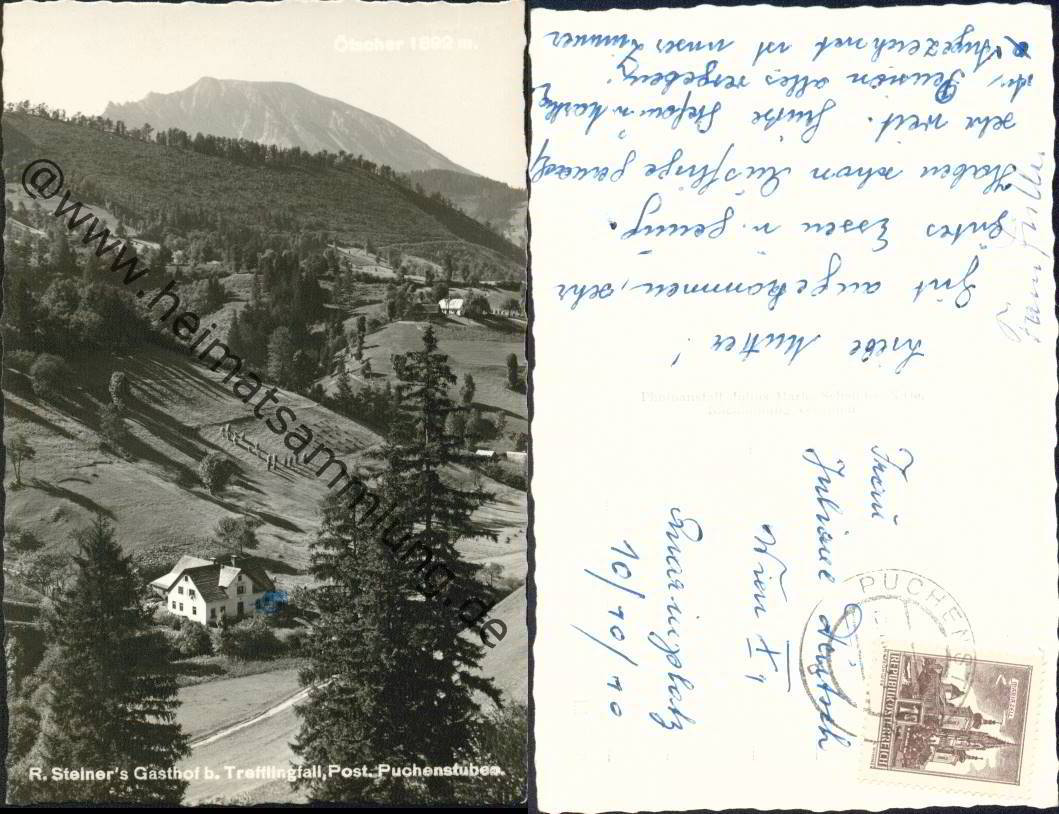 Ötscher 1892 m.
@www.heimatsammlung.de
R. Steiner's Gasthof b. Trefflingfall, Post. Puchenstuben.
Liebe Mutter!
Gut angekommen, sehr
gutes Essen u. genug.
Haben schon Ausflüge gemacht
sehr weit. Heute
Pension alles vergeben,
Ausgezeichnet ist unser Zimmer
Photoanstalt Julius
Frau
Juliane
Wien X,
10/10/10
PUCHENST
REPUBLIK ÖSTERREICH